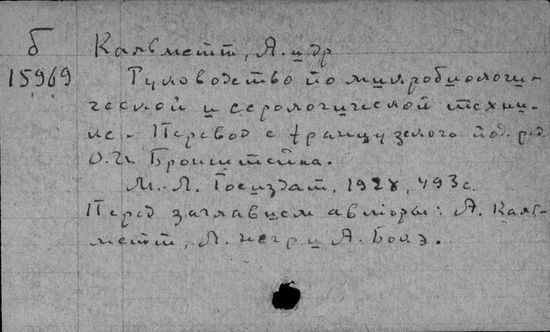 б Кальметт, А. и др
15969 Руководство по микробиологи-
ческой и серологической техни-
ке. Перевод с французского под. ред.
О. И. Бронштейна.
М.-Л. Госиздат, 1928, 493 с.
Перед заглавием авторы: А. Каль-
метт, Л. Негр и А. Бокэ.